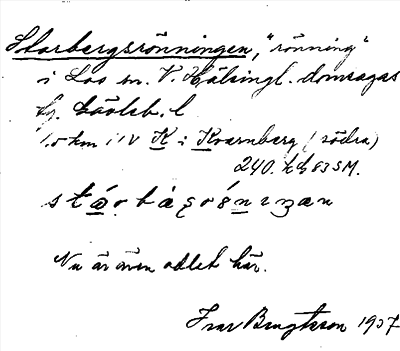 Storbergsrönningen, "rönning"
i Los sn. V. Hälsingl. domsagas
tg. Gävleb. l
1,5 km i NV K i Kvarnberg (södra)
240. kh 83 SM.
Nu är även odlet här.
Ivar Bengtsson 1937